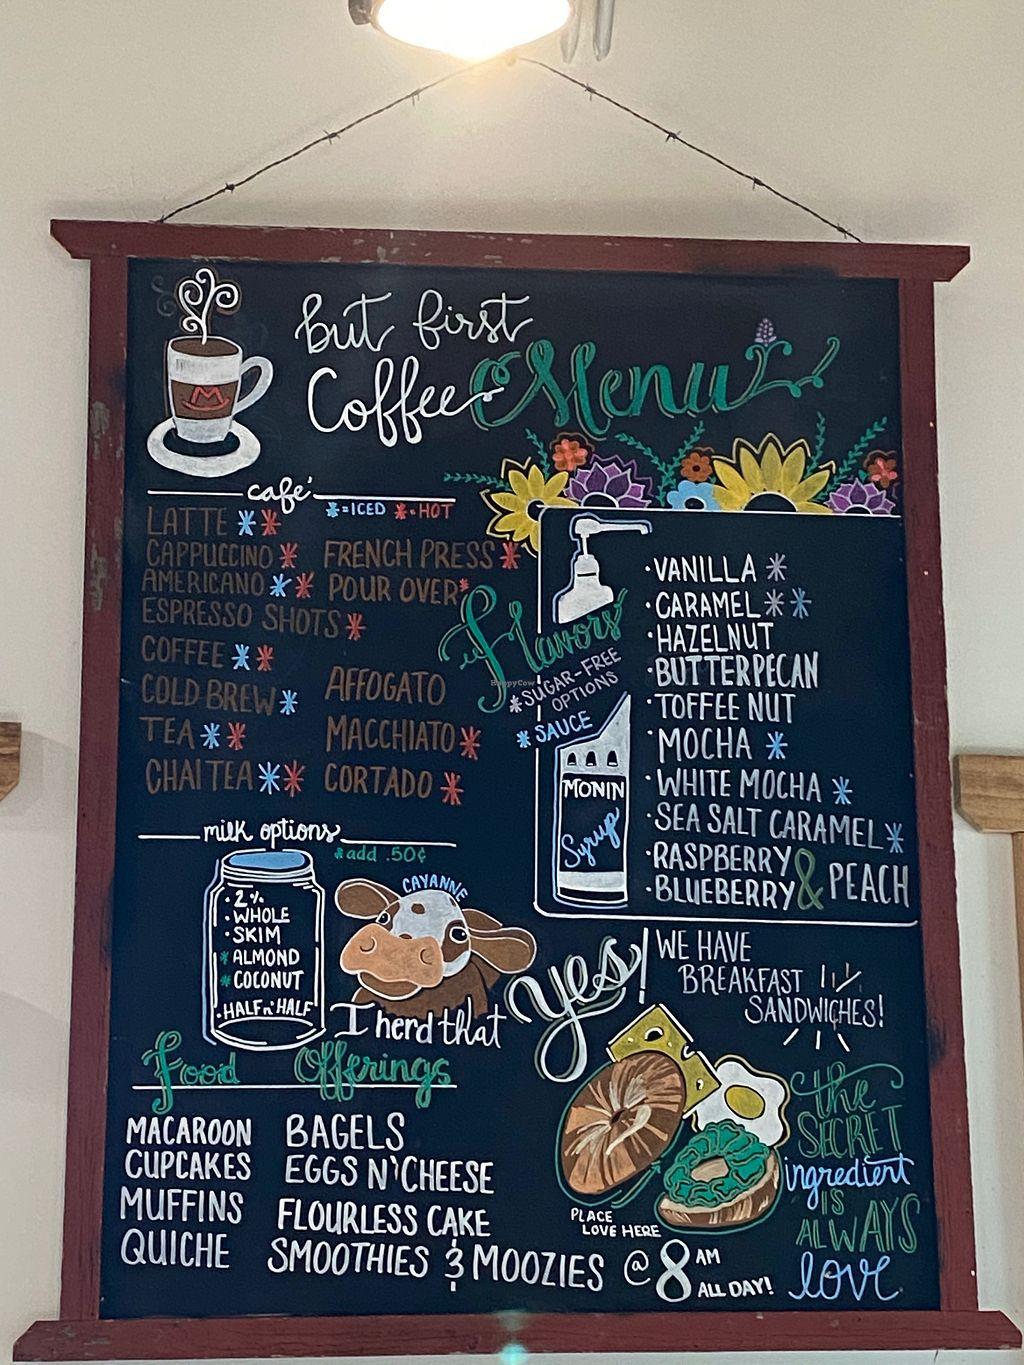 But first
Coffee Menu
M
café
*=ICED *=HOT
LATTE **
CAPPUCCINO *
FRENCH PRESS *
AMERICANO **
POUR OVER *
ESPRESSO SHOTS *
COFFEE **
COLD BREW *
AFFOGATO
TEA **
MACCHIATO *
CHAI TEA **
CORTADO *
Flavors
*SUGAR-FREE
OPTIONS
* SAUCE
MONIN
Syrup
·VANILLA *
·CARAMEL **
·HAZELNUT
·BUTTERPECAN
·TOFFEE NUT
·MOCHA *
·WHITE MOCHA *
·SEA SALT CARAMEL *
·RASPBERRY
·BLUEBERRY & PEACH
HappyCow
milk options
*add .50¢
·2%
·WHOLE
·SKIM
*ALMOND
*COCONUT
·HALF n' HALF
CAYANNE
I herd that
Yes! WE HAVE
BREAKFAST
SANDWICHES!
Food Offerings
MACAROON
CUPCAKES
MUFFINS
QUICHE
BAGELS
EGGS N' CHEESE
FLOURLESS CAKE
SMOOTHIES & MOOZIES
PLACE
LOVE HERE
@ 8 AM
ALL DAY!
the
SECRET
ingredient
IS
ALWAYS
love